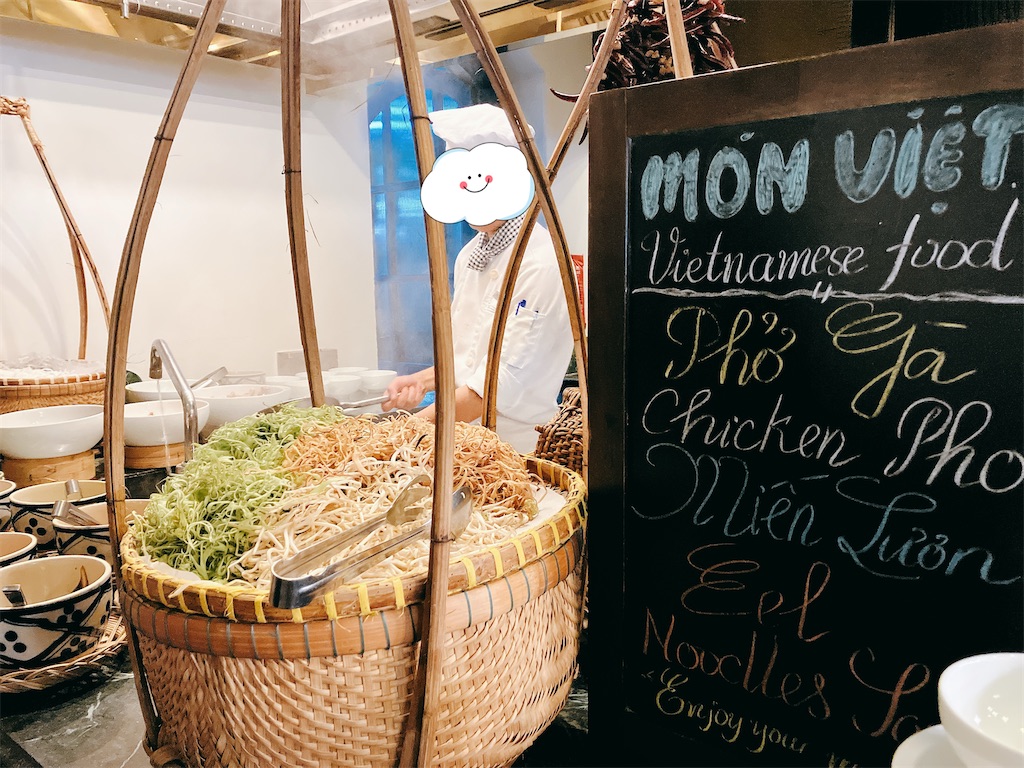 MÓN VIỆT
Vietnamese food
Phở Gà
Chicken Pho
Miến Lươn
Eel
Noodles
"Enjoy your